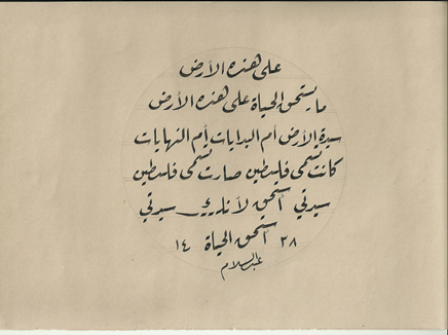 على هذه الأرض
ما يستحق الحياة على هذه الأرض
سيدة الأرض أم البدايات أم النهايات
كانت تسمى فلسطين صارت تسمى فلسطين
سيدتي أستحق لأنك سيدتي
٢٨ أستحق الحياة ١٤
عبدالسلام